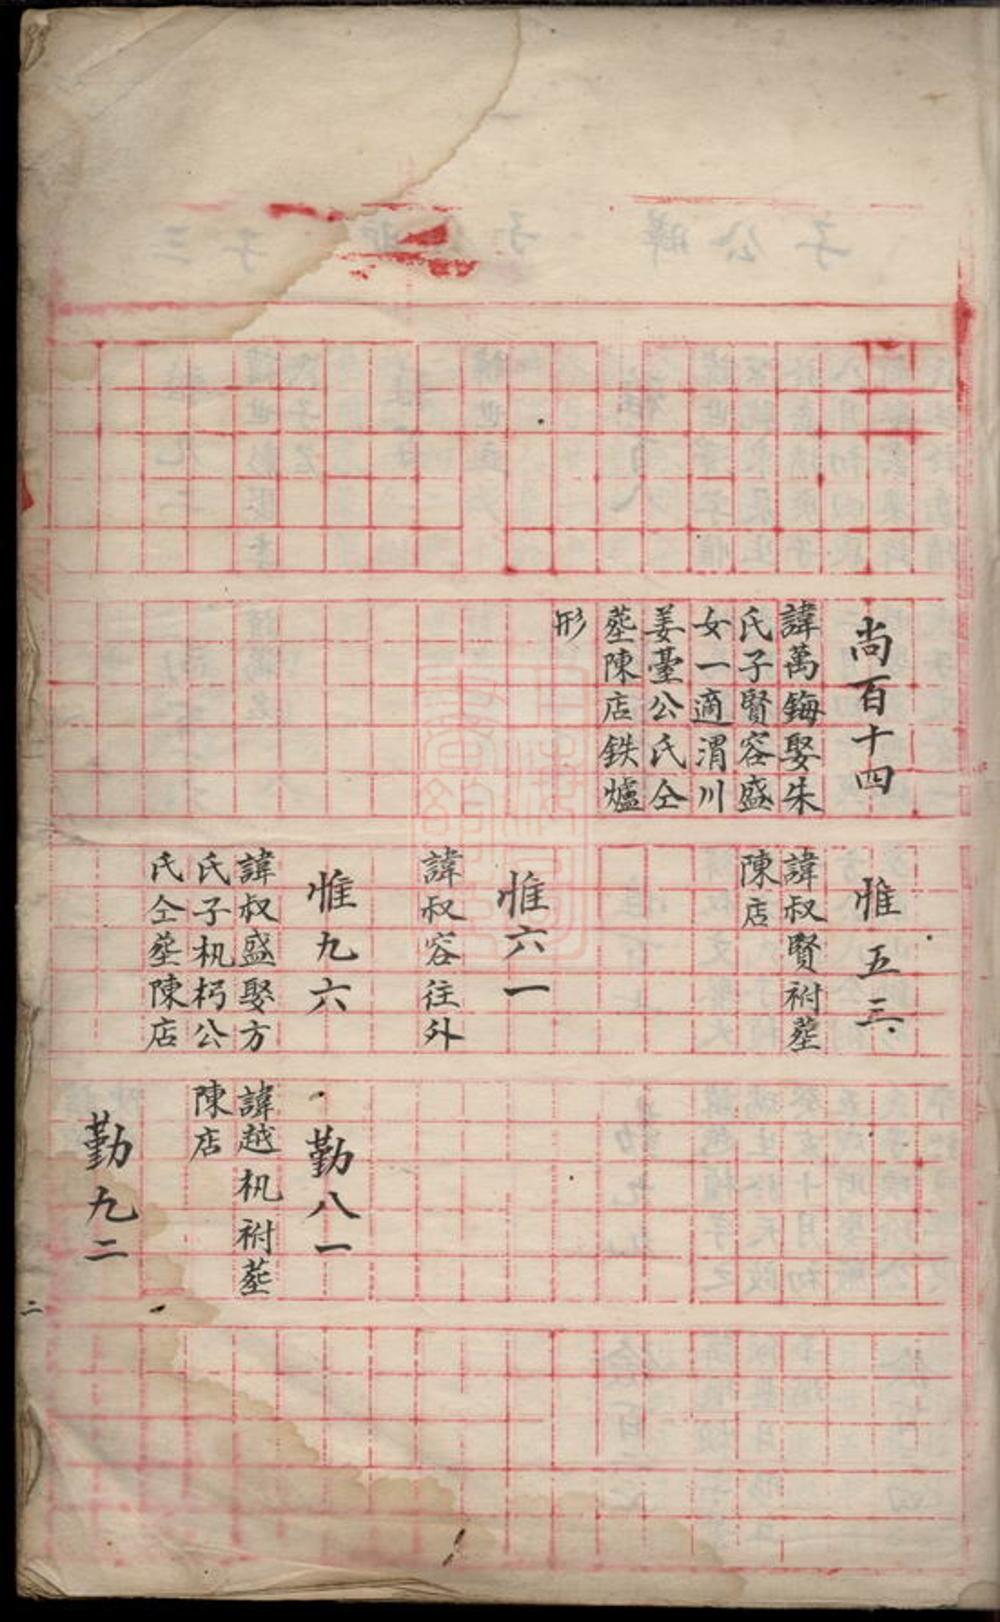 尚百十四
諱萬鋂娶朱
氏子賢容盛
女一適渭川
姜臺公氏仝
塟陳店鉄爐
形
惟五三
諱叔賢祔塟
陳店
惟六一
諱叔容往外
惟九六
諱叔盛娶方
氏子杋杇公
氏仝塟陳店
勤八一
諱越杋祔塟
陳店
勤九二
二